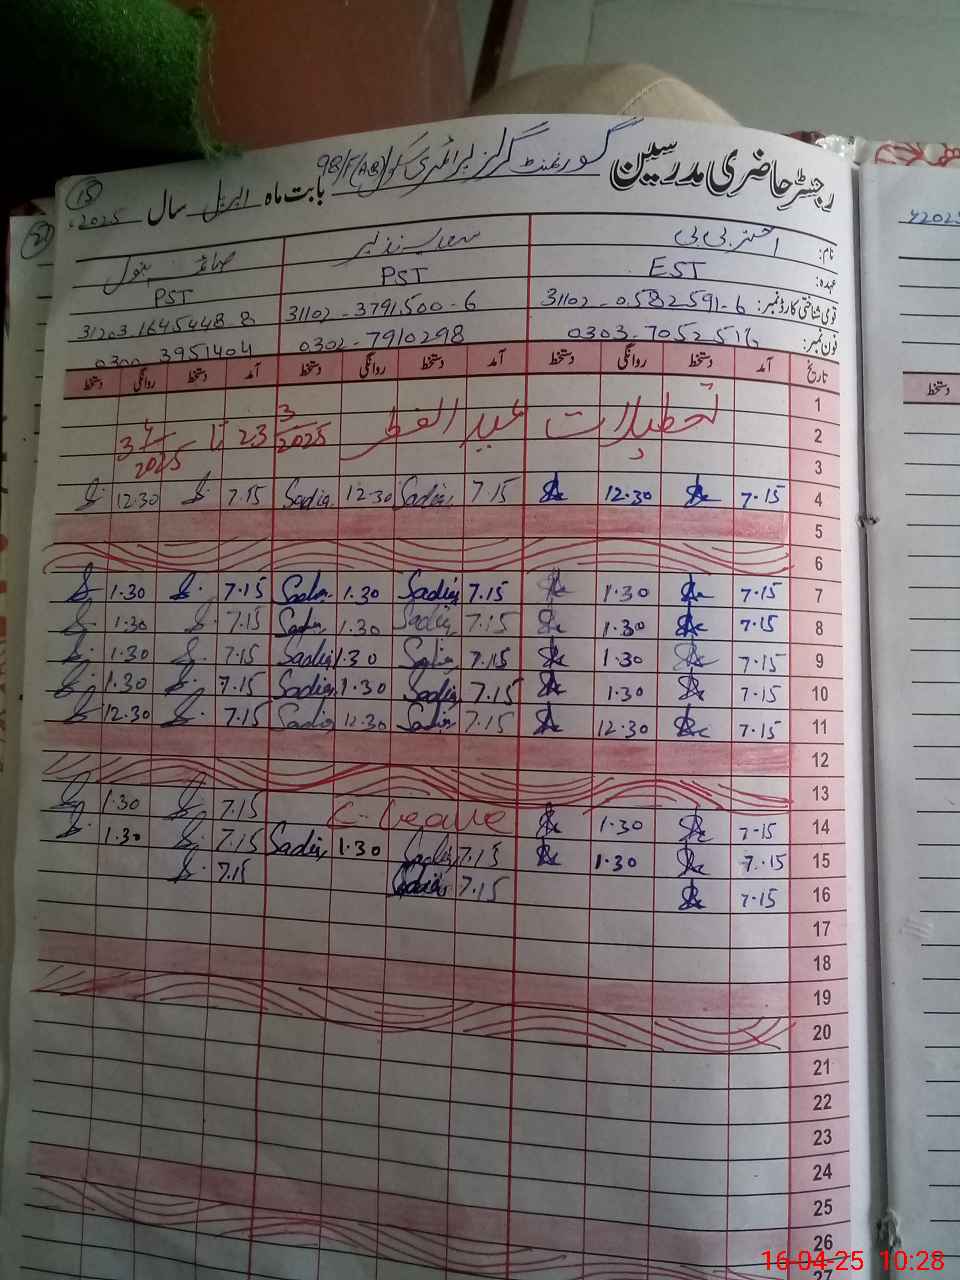 رجسٹر حاضری مدرسین گورنمنٹ گرلز پرائمری 98/F(AB)
بابت ماہ اپریل سال 2025ء
15
نام: اختر بی بی سعدیہ نذیر صائمہ بتول
عہدہ: EST PST PST
قومی شناختی کارڈ نمبر: 31102-0582591-6 31102-3791500-6 31203-1645448-8
فون نمبر: 0303-7052516 0302-7910298 0300-3951404
تاریخ آمد دستخط روانگی دستخط آمد دستخط روانگی دستخط آمد دستخط روانگی دستخط
1
تعطیلات عید الفطر 23 3/2025 تا 3 4/2025
2
3
4 7.15 12.30 7.15 Sadia 12.30 Sadia 7.15 12.30
5
6
7 7.15 1.30 7.15 Sadia 1.30 Sadia 7.15 1.30
8 7.15 1.30 7.15 Sadia 1.30 Sadia 7.15 1.30
9 7.15 1.30 7.15 Sadia 1.30 Sadia 7.15 1.30
10 7.15 1.30 7.15 Sadia 1.30 Sadia 7.15 1.30
11 7.15 12.30 7.15 Sadia 12.30 Sadia 7.15 12.30
12
13
14 7-15 1.30 C-Leave 7.15 1.30
15 7.15 1.30 7.15 Sadia 1.30 Sadia 7.15 1.30
16 7.15 7.15 Sadia 7.15
17
18
19
20
21
22
23
24
25
26
27
2025
دستخط
16-04-25 10:28